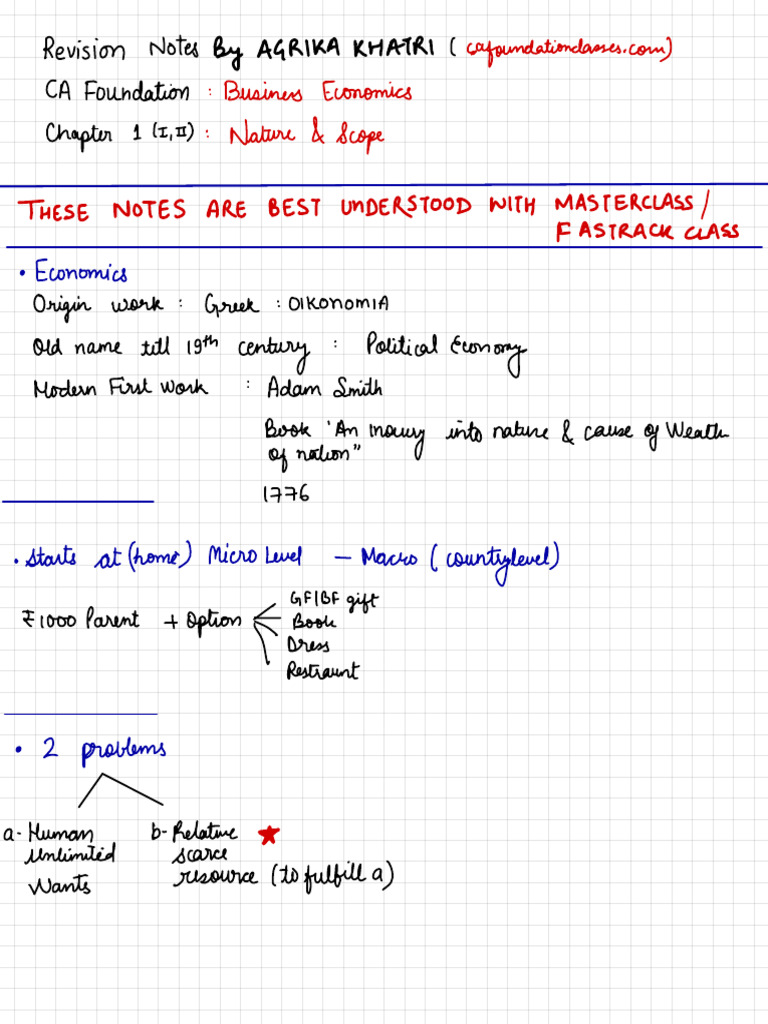 Revision Notes By AGRIKA KHATRI ( cafoundationclasses.com)
CA Foundation : Business Economics
Chapter 1 (I, II) : Nature & Scope
THESE NOTES ARE BEST UNDERSTOOD WITH MASTERCLASS /
FASTRACK CLASS
• Economics
Origin work : Greek : OIKONOMIA
Old name till 19th century : Political Economy
Modern First Work : Adam Smith
Book "An Inquiry into nature & cause of Wealth
of nation"
1776
• Starts at (home) Micro Level – Macro ( country level)
₹1000 Parent + Option
GF/BF gift
Book
Dress
Restraunt
• 2 problems
a- Human b- Relative ★
Unlimited scarce
Wants resource (to fulfill a)